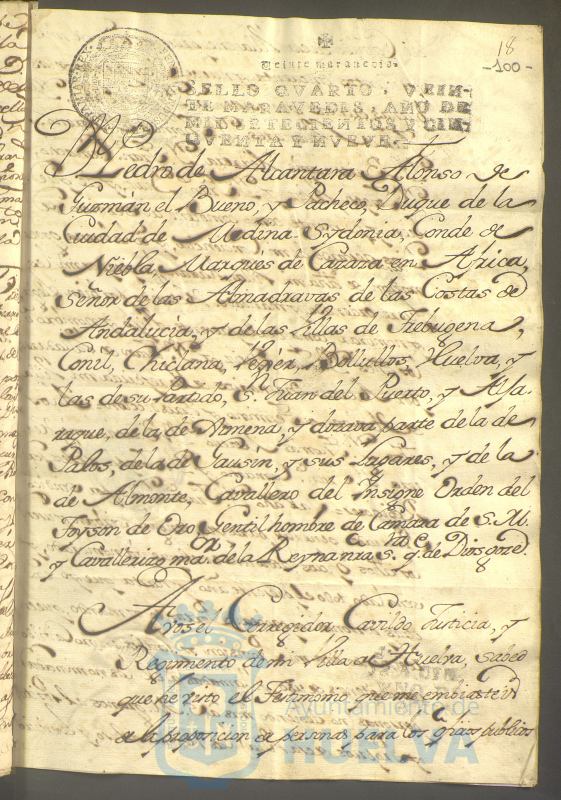 18
-100-
Veinte maravedis.
SELLO QVARTO, VEIN-
TE MARAVEDIS, AÑO DE
MIL SETECIENTOS Y CIN-
QVENTA Y NUEVE.
Dn Pedro de Alcantara Alonso de
Guzmán el Bueno, y Pacheco, Duque de la
Ciudad de Medina Sydonia, Conde de
Niebla, Marqués de Cazaza en Africa,
Señor de las Almadravas de las Costas de
Andalucia, y de las Villas de Trebugena,
Conil, Chiclana, Veger, Bollullos, Huelva, y
las de su Partido, Sn. Juan del Puerto, y Alja-
raque, de la de Ximena, y dozava parte de la de
Palos, de la de Gausin, y sus Lugares, y de la
de Almonte, Cavallero del Insigne Orden del
Toyson de Oro Gentil hombre de Camara de S. M.
y Cavallerizo mor. de la Reyna nra Sra. q. Dios gde.
A vos el Corregidor Cavildo Justicia, y
Regimiento de mi Villa de Huelva, sabed
que he visto el Testimonio que me embiasteis
de la proposicion de personas para los oficios publicos
Ayuntamiento de
HUELVA